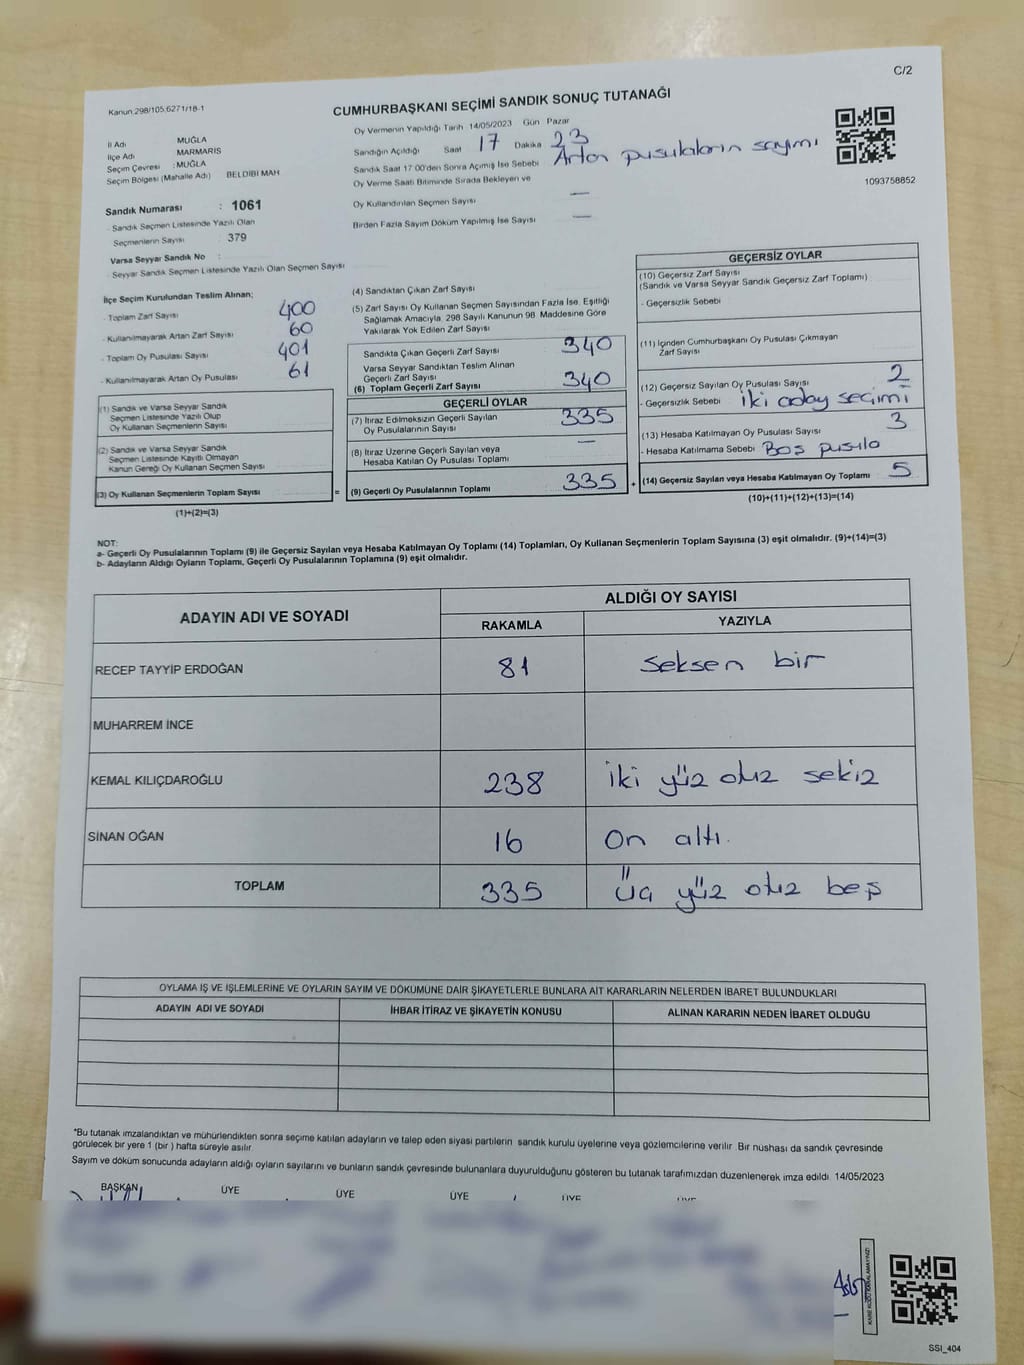 C/2
Kanun:298/105.6271/18-1
CUMHURBAŞKANI SEÇİMİ SANDIK SONUÇ TUTANAĞI
İl Adı MUĞLA
İlçe Adı MARMARİS
Seçim Çevresi :MUĞLA
Seçim Bölgesi (Mahalle Adı) BELDİBİ MAH
Sandık Numarası : 1061
- Sandık Seçmen Listesinde Yazılı Olan
Seçmenlerin Sayısı 379
Varsa Seyyar Sandık No :
- Seyyar Sandık Seçmen Listesinde Yazılı Olan Seçmen Sayısı
Oy Vermenin Yapıldığı Tarih 14/05/2023 Gün Pazar
Sandığın Açıldığı Saat 17 Dakika 23
Sandık Saat 17:00'den Sonra Açımış İse Sebebi Artan pusulaların sayımı
Oy Verme Saati Bitiminde Sırada Bekleyen ve
Oy Kullandırılan Seçmen Sayısı —
Birden Fazla Sayım Döküm Yapılmış İse Sayısı —
1093758852
İlçe Seçim Kurulundan Teslim Alınan;
- Toplam Zarf Sayısı 400
- Kullanılmayarak Artan Zarf Sayısı 60
- Toplam Oy Pusulası Sayısı 401
- Kullanılmayarak Artan Oy Pusulası 61
(1) Sandık ve Varsa Seyyar Sandık
Seçmen Listesinde Yazılı Olup
Oy Kullanan Seçmenlerin Sayısı
(2) Sandık ve Varsa Seyyar Sandık
Seçmen Listesinde Kayıtlı Olmayan
Kanun Gereği Oy Kullanan Seçmen Sayısı
(3) Oy Kullanan Seçmenlerin Toplam Sayısı =
(1)+(2)=(3)
(4) Sandıktan Çıkan Zarf Sayısı
(5) Zarf Sayısı Oy Kullanan Seçmen Sayısından Fazla İse, Eşitliği
Sağlamak Amacıyla, 298 Sayılı Kanunun 98. Maddesine Göre
Yakılarak Yok Edilen Zarf Sayısı
Sandıkta Çıkan Geçerli Zarf Sayısı 340
Varsa Seyyar Sandıktan Teslim Alınan
Geçerli Zarf Sayısı
(6) Toplam Geçerli Zarf Sayısı 340
GEÇERLİ OYLAR
(7) İtiraz Edilmeksizin Geçerli Sayılan
Oy Pusulalarının Sayısı 335
(8) İtiraz Üzerine Geçerli Sayılan veya
Hesaba Katılan Oy Pusulası Toplamı —
(9) Geçerli Oy Pusulalarının Toplamı 335 +
GEÇERSİZ OYLAR
(10) Geçersiz Zarf Sayısı
(Sandık ve Varsa Seyyar Sandık Geçersiz Zarf Toplamı)
- Geçersizlik Sebebi
(11) İçinden Cumhurbaşkanı Oy Pusulası Çıkmayan
Zarf Sayısı
(12) Geçersiz Sayılan Oy Pusulası Sayısı 2
- Geçersizlik Sebebi iki aday seçimi
(13) Hesaba Katılmayan Oy Pusulası Sayısı 3
- Hesaba Katılmama Sebebi Boş pusula
(14) Geçersiz Sayılan veya Hesaba Katılmayan Oy Toplamı 5
(10)+(11)+(12)+(13)=(14)
NOT:
a- Geçerli Oy Pusulalarının Toplamı (9) ile Geçersiz Sayılan veya Hesaba Katılmayan Oy Toplamı (14) Toplamları, Oy Kullanan Seçmenlerin Toplam Sayısına (3) eşit olmalıdır. (9)+(14)=(3)
b- Adayların Aldığı Oyların Toplamı, Geçerli Oy Pusulalarının Toplamına (9) eşit olmalıdır.
ADAYIN ADI VE SOYADI ALDIĞI OY SAYISI
RAKAMLA YAZIYLA
RECEP TAYYİP ERDOĞAN 81 Seksen bir
MUHARREM İNCE
KEMAL KILIÇDAROĞLU 238 iki yüz otuz sekiz
SİNAN OĞAN 16 On altı.
TOPLAM 335 Üç yüz otuz beş
OYLAMA İŞ VE İŞLEMLERİNE VE OYLARIN SAYIM VE DÖKÜMÜNE DAİR ŞİKAYETLERLE BUNLARA AİT KARARLARIN NELERDEN İBARET BULUNDUKLARI
ADAYIN ADI VE SOYADI İHBAR İTİRAZ VE ŞİKAYETİN KONUSU ALINAN KARARIN NEDEN İBARET OLDUĞU
*Bu tutanak imzalandıktan ve mühürlendikten sonra seçime katılan adayların ve talep eden siyasi partilerin sandık kurulu üyelerine veya gözlemcilerine verilir. Bir nüshası da sandık çevresinde
görülecek bir yere 1 (bir ) hafta süreyle asılır.
Sayım ve döküm sonucunda adayların aldığı oyların sayılarını ve bunların sandık çevresinde bulunanlara duyurulduğunu gösteren bu tutanak tarafımızdan düzenlenerek imza edildi. 14/05/2023
BAŞKAN ÜYE ÜYE ÜYE ÜYE ÜYE
SSI_404